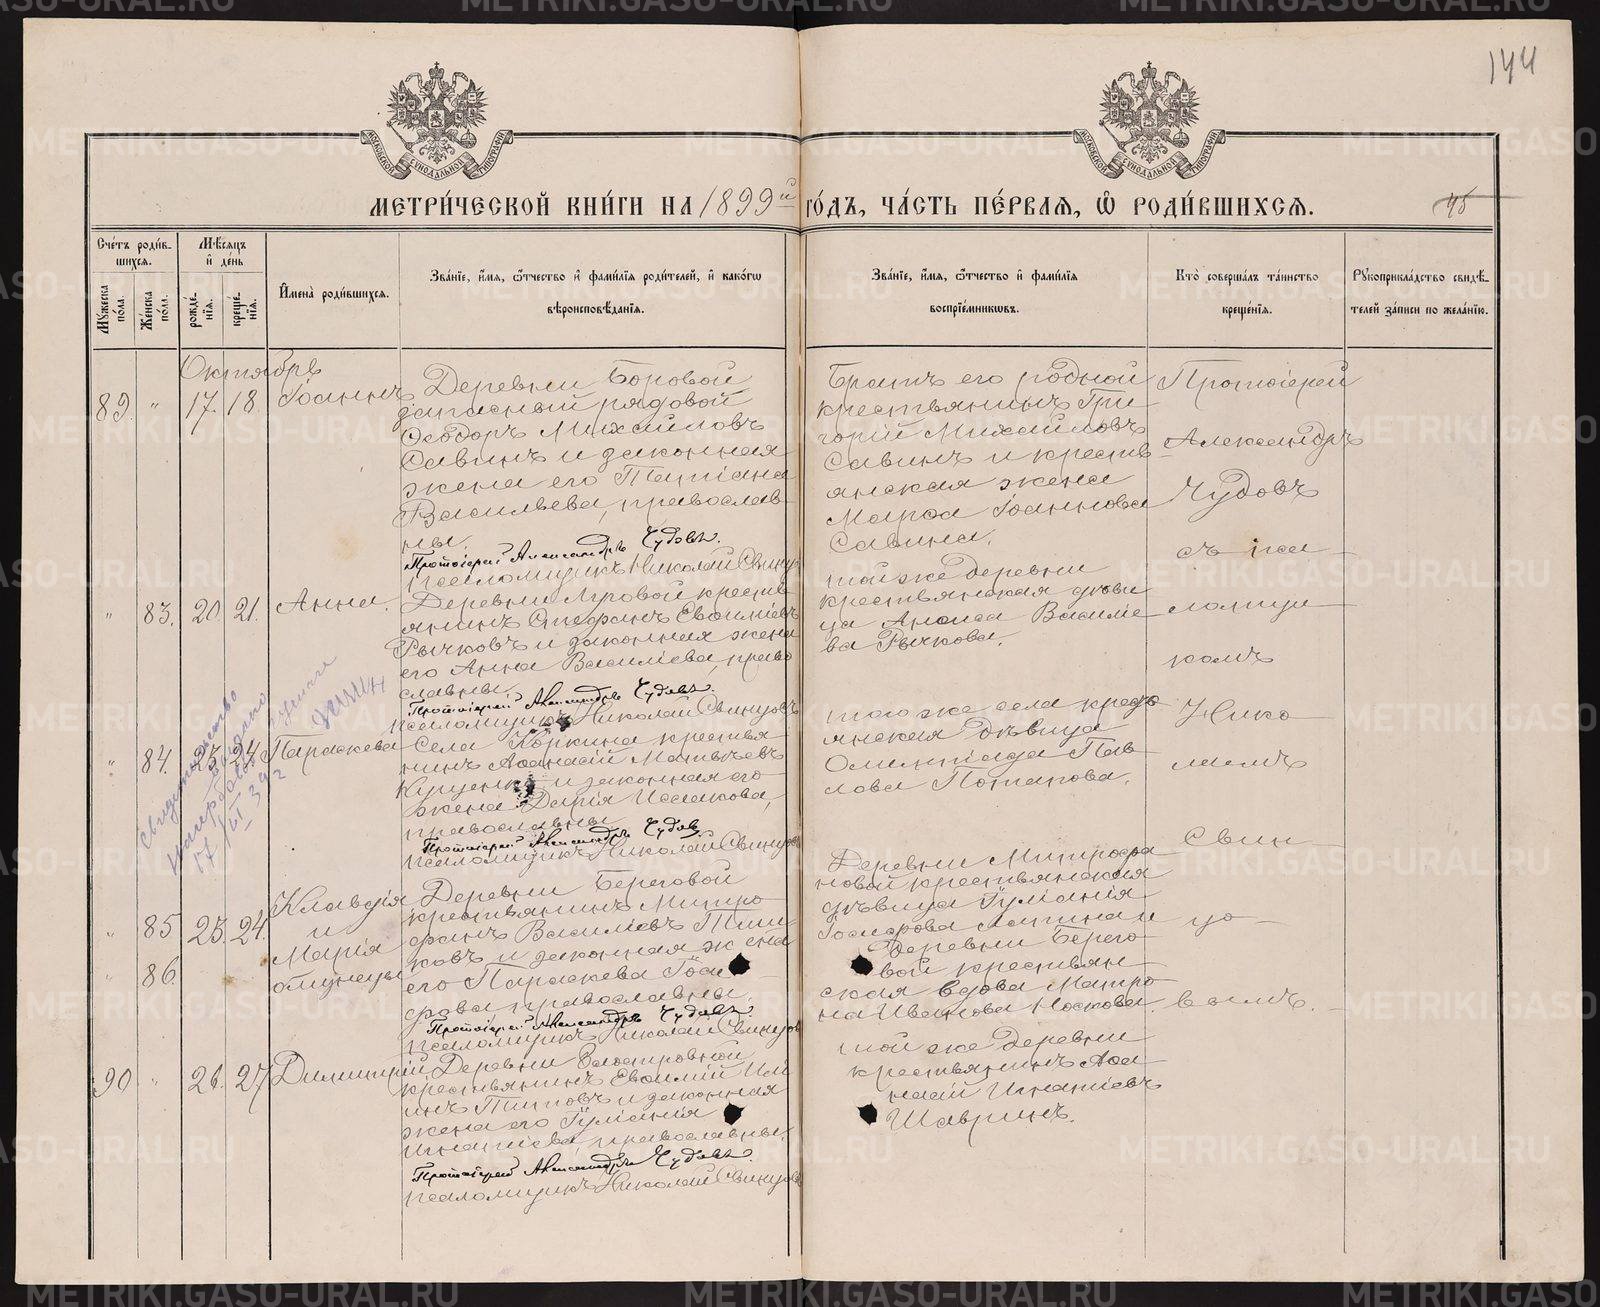 144
МОСКОВСКОЙ СУНОДАЛЬНОЙ ТИПОГРАФІИ
МОСКОВСКОЙ СУНОДАЛЬНОЙ ТИПОГРАФІИ
МЕТРИ́ЧЕСКОЙ КНИ́ГИ НА 1899й ГО́ДЪ, ЧА́СТЬ ПЕ́РВАЯ, Ѡ РОДИ́ВШИХСЯ.
Сче́тъ роди́в-
шихся.
Мѣ́сяцъ
и де́нь
Му́жеска по́ла.
Же́нска по́ла.
рожде́-
нія.
креще́-
нія.
И́мена роди́вшихся.
Зва́ніе, и́мя, ѻ́тчество и фами́лія роди́телей, и како́гѡ
вѣроисповѣ́данія.
Зва́ніе, и́мя, ѻ́тчество и фами́лія
воспріе́мникѡвъ.
Кто̀ соверша́лъ та́инство
креще́нія.
Рꙋкоприкла́дство свидѣ́-
телей за́писи по жела́нію.
Октябрь
89. " 17. 18. Іоаннъ
Деревни Боровой
запасный рядовой
Ѳеодоръ Михаиловъ
Савинъ и законная
жена его Татіана
Васильева, православ-
ны.
Протоіерей Александръ Чудовъ.
Псаломщикъ Николай Свинцовъ
Братъ его родной
крестьянинъ Гри-
горій Михаиловъ
Савинъ и кресть-
янская жена
Марѳа Іоаннова
Савина.
Протоіерей
Александръ
Чудовъ
съ пса-
ломщи-
комъ
Нико-
лаемъ
Свин-
цо-
вымъ.
" 83. 20. 21. Анна.
Деревни кресть-
янинъ Стефанъ Евѳиміевъ
Рычковъ и законная жена
его Анна Василіева, право-
славны.
Протоіерей Александръ Чудовъ.
Псаломщикъ Николай Свинцовъ
той же деревни
крестьянская дѣви-
ца Анѳиса Василіе-
ва Рычкова.
" 84. 23. 24. Параскева
Села Коркина крестья-
нинъ Аѳанасій Матвѣевъ
и законная его
жена Дарія Исаакова,
православны
Протоіерей Александръ Чудовъ
Псаломщикъ Николай Свинцовъ
того же села кресть-
янская дѣвица
Олимпіада Пав-
лова Потапова.
Свидетельство
17/VI 39 г
" 85 23. 24. Клавдія
и
Марія
близнецы
" 86.
Деревни Береговой
крестьянинъ Митро-
фанъ Василіевъ
и законная жена
его Параскева
православны.
Протоіерей Александръ Чудовъ.
Псаломщикъ Николай Свинцовъ
Деревни Митрофа-
новой крестьянская
дѣвица Іуліанія
и
Деревни Берего-
вой крестьян-
ская вдова Матро-
на Иванова Носкова.
90 " 26. 27 Димитрій
Деревни
крестьянинъ Евѳимій
Титовъ и законная
жена его Іуліанія
Игнатіева, православны.
Протоіерей Александръ Чудовъ.
Псаломщикъ Николай Свинцовъ
той же деревни
крестьянинъ Аѳа-
насій Игнатіевъ
Шавринъ.
METRIKI.GASO-URAL.RU